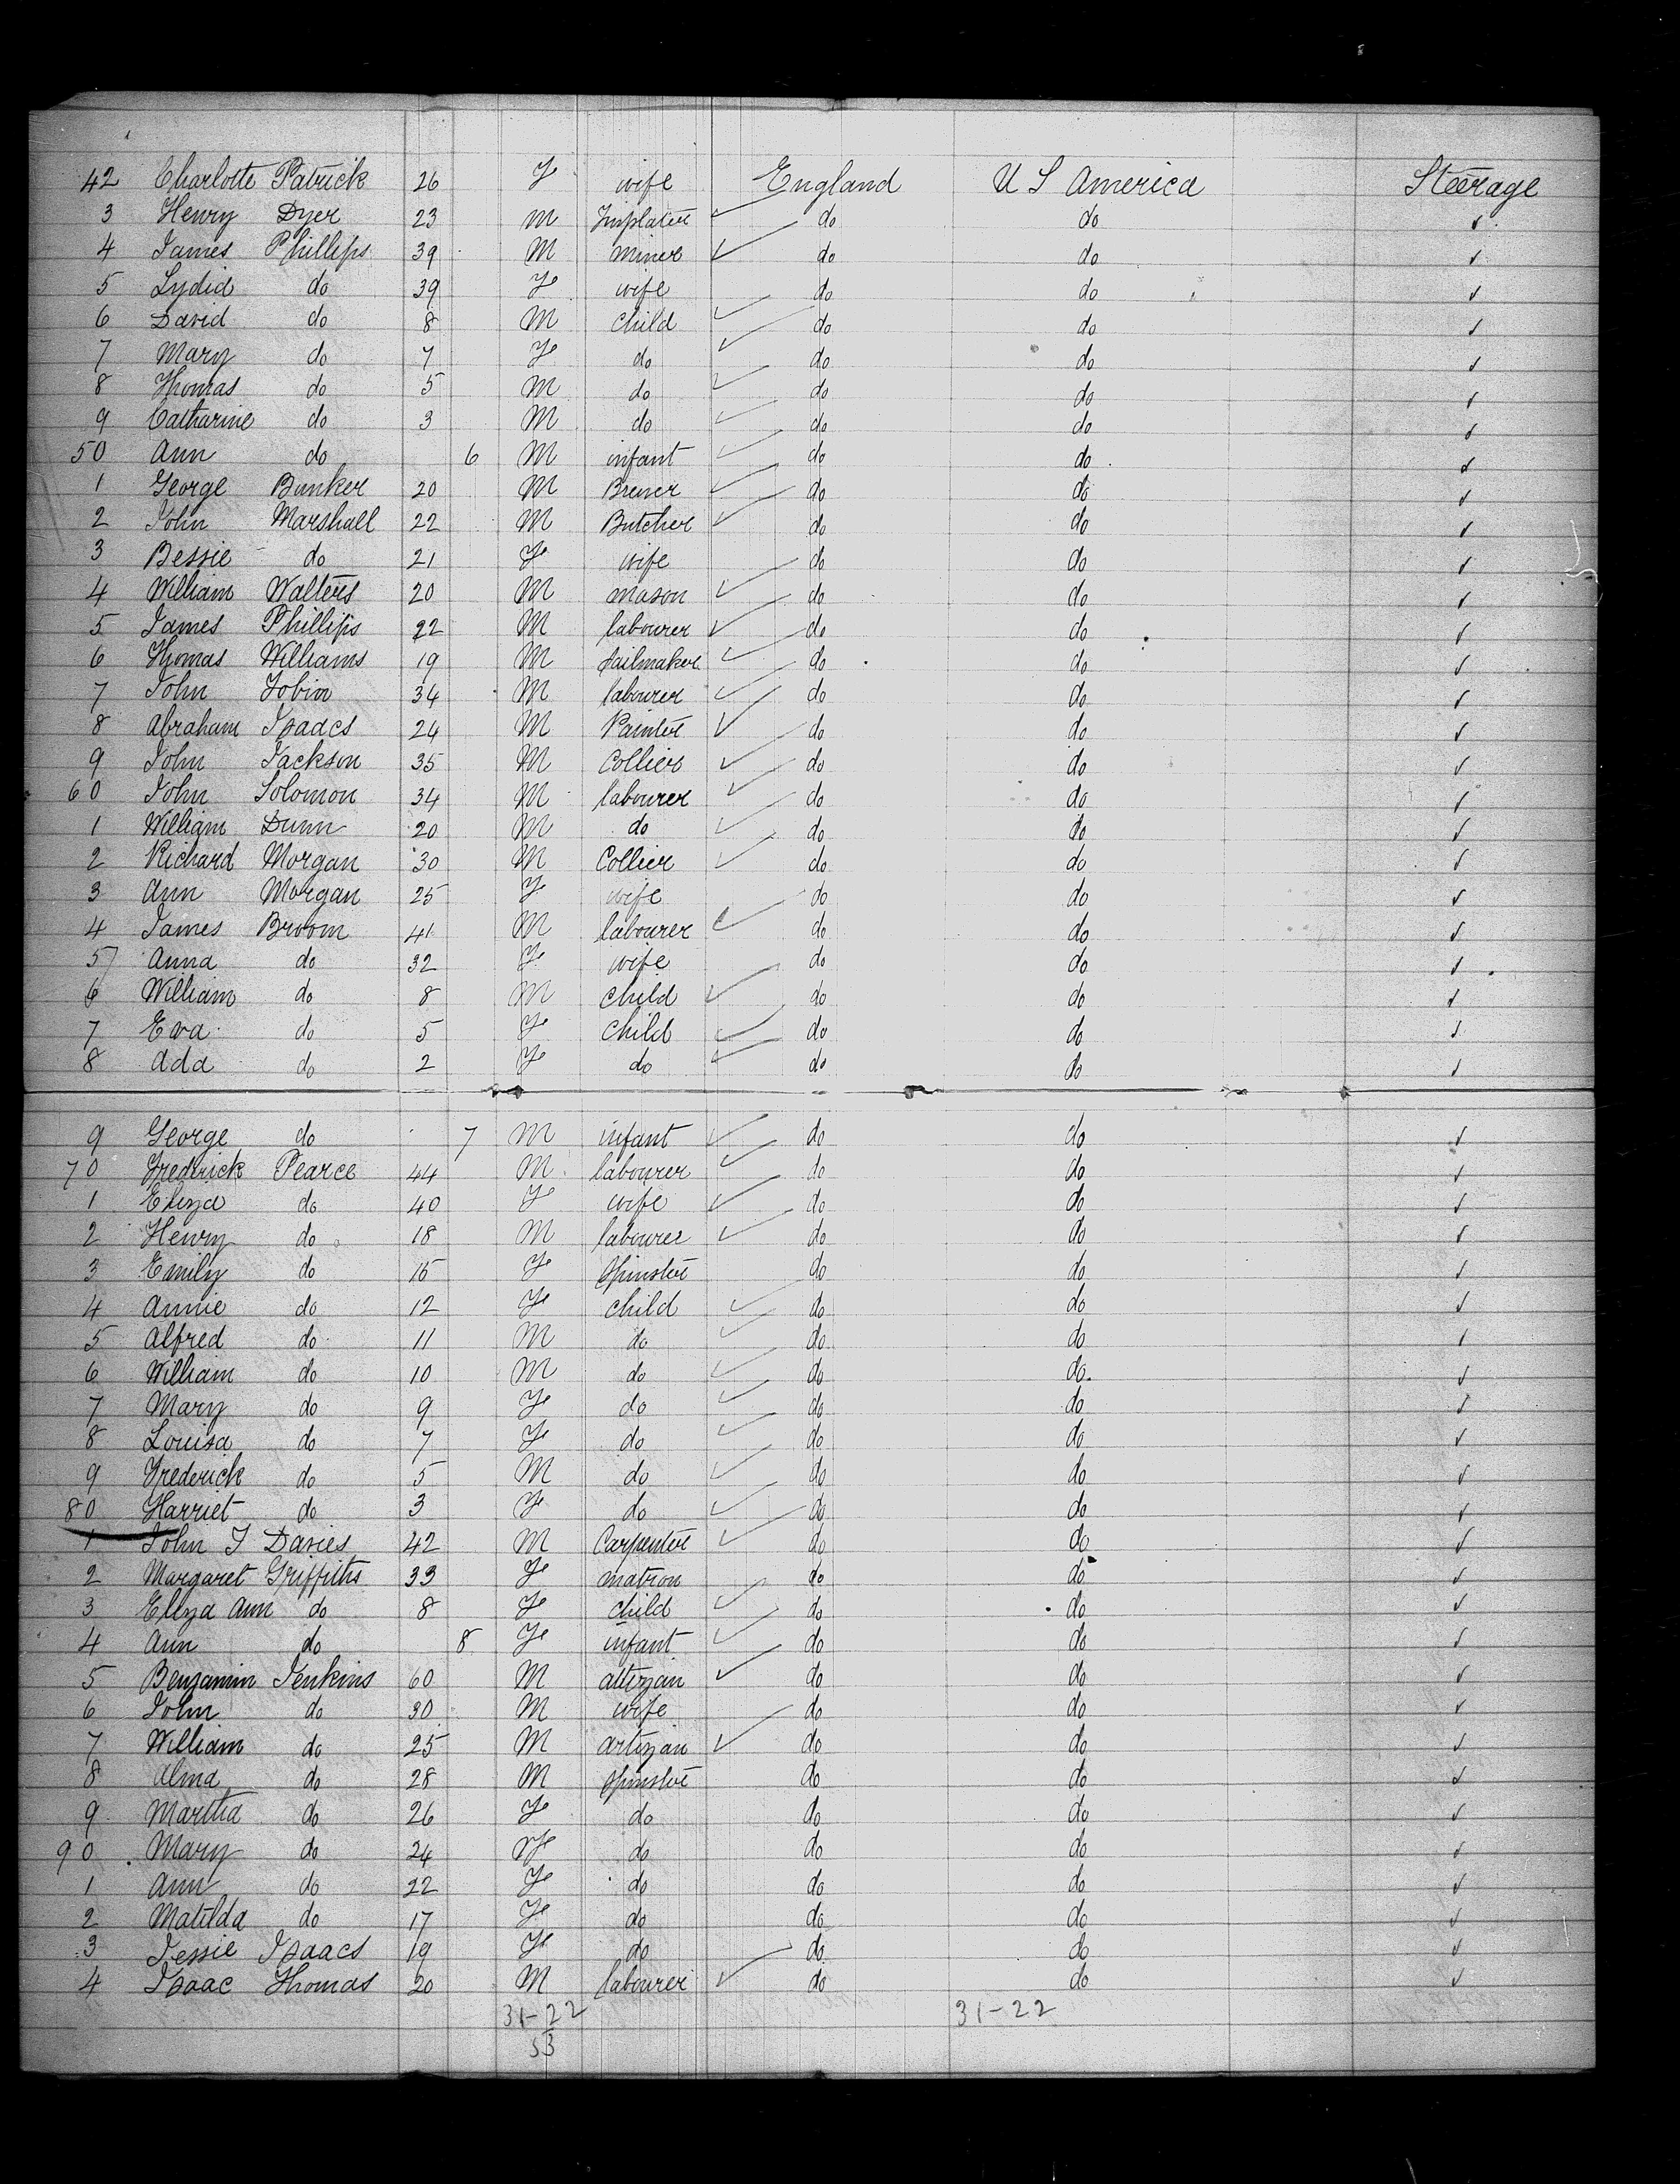 42 Charlotte Patrick 26 F wife England U S America Steerage
3 Henry Dyer 23 M Tinplater do do
4 James Phillips 39 M miner do do
5 Lydia do 39 F wife do do
6 David do 8 M child do do
7 Mary do 7 F do do do
8 Thomas do 5 M do do do
9 Catharine do 3 M do do do
50 Ann do 6 M infant do do
1 George Bunker 20 M Brewer do do
2 John Marshall 22 M Butcher do do
3 Bessie do 21 F wife do do
4 William Walters 20 M mason do do
5 James Phillips 22 M labourer do do
6 Thomas Williams 19 M sailmaker do do
7 John Tobin 34 M labourer do do
8 Abraham Isaacs 24 M Painter do do
9 John Jackson 35 M Collier do do
60 John Solomon 34 M labourer do do
1 William Dunn 20 M do do do
2 Richard Morgan 30 M Collier do do
3 Ann Morgan 25 F wife do do
4 James Broom 41 M labourer do do
5 Anna do 32 F wife do do
6 William do 8 M child do do
7 Eva do 5 F child do do
8 Ada do 2 F do do do
9 George do 7 M infant do do
70 Frederick Pearce 44 M labourer do do
1 Eliza do 40 F wife do do
2 Henry do 18 M labourer do do
3 Emily do 15 F Spinster do do
4 Annie do 12 F child do do
5 Alfred do 11 M do do do
6 William do 10 M do do do
7 Mary do 9 F do do do
8 Louisa do 7 F do do do
9 Frederick do 5 M do do do
80 Harriet do 3 F do do do
1 John J Davies 42 M Carpenter do do
2 Margaret Griffiths 33 F matron do do
3 Eliza Ann do 8 F child do do
4 Ann do 8 F infant do do
5 Benjamin Jenkins 60 M do do
6 John do 30 M wife do do
7 William do 25 M artizan do do
8 Alma do 28 M Spinster do do
9 Martha do 26 F do do do
90 Mary do 24 F do do do
1 Ann do 22 F do do do
2 Matilda do 17 F do do do
3 Jessie Isaacs 19 F do do do
4 Isaac Thomas 20 M labourer do do
31-22 31-22
53